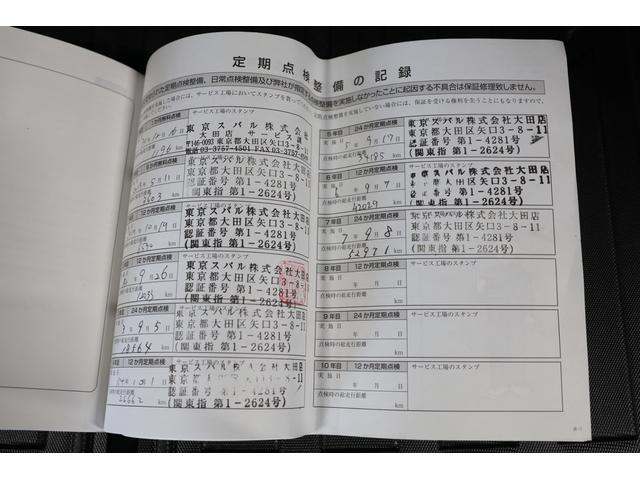 定期点検整備の記録
定期点検整備、日常点検整備及び弊社が指定する点検整備を実施しなかったことに起因する不具合は保証修理致しません。
サービス工場のスタンプ
東京スバル株式会社
大田店 サービス課
〒146-0093 東京都大田区矢口3-8-11
電話 03-3757-4501 FAX 03-3757-
東京スバル株式会社大田店
東京都大田区矢口3-8-11
認証番号 第1-4281号
(関東指 第1-2624号)
12か月定期点検
サービス工場のスタンプ
東京スバル株式会社大田店
東京都大田区矢口3-8-11
認証番号 第1-4281号
(関東指 第1-2624号)
12か月定期点検
サービス工場のスタンプ
9月26日
東京スバル株式会社大田店
東京都大田区矢口3-8-11
認証番号 第1-4281号
(関東指 第1-2624号)
24か月定期点検
サービス工場のスタンプ
9月5日
東京スバル株式会社大田店
東京都大田区矢口3-8-11
認証番号 第1-4281号
(関東指 第1-2624号)
12か月定期点検
サービス工場のスタンプ
東京スバル株式会社大田店
認証番号 第1-4281号
(関東指 第1-2624号)
5年目 24か月定期点検
実施日 5年9月17日
点検時の総走行距離 km
東京スバル株式会社大田店
東京都大田区矢口3-8-11
認証番号 第1-4281号
(関東指 第1-2624号)
6年目 12か月定期点検
実施日 6年9月7日
点検時の総走行距離 42029 km
東京スバル株式会社大田店
東京都大田区矢口3-8-11
認証番号 第1-4281号
(関東指 第1-2624号)
7年目 24か月定期点検
実施日 7年9月8日
点検時の総走行距離 52971 km
サービス工場のスタンプ
東京スバル株式会社大田店
東京都大田区矢口3-8-11
認証番号 第1-4281号
(関東指 第1-2624号)
8年目 12か月定期点検
サービス工場のスタンプ
実施日 年 月 日
点検時の総走行距離 km
9年目 24か月定期点検
サービス工場のスタンプ
実施日 年 月 日
点検時の総走行距離 km
10年目 12か月定期点検
サービス工場のスタンプ
実施日 年 月 日
点検時の総走行距離 km